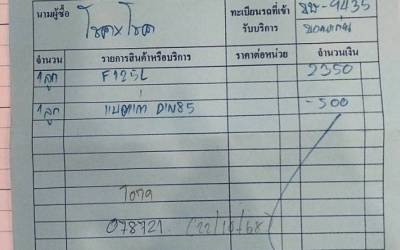 นามผู้ซื้อ โชคxโชค ทะเบียนรถที่เข้ารับบริการ -9435
จำนวน รายการสินค้าหรือบริการ ราคาต่อหน่วย จำนวนเงิน
1 ลูก F125L 2350
1 ลูก แบตเก่า DIN85 -500
โอกส
078721 (22/10/68)